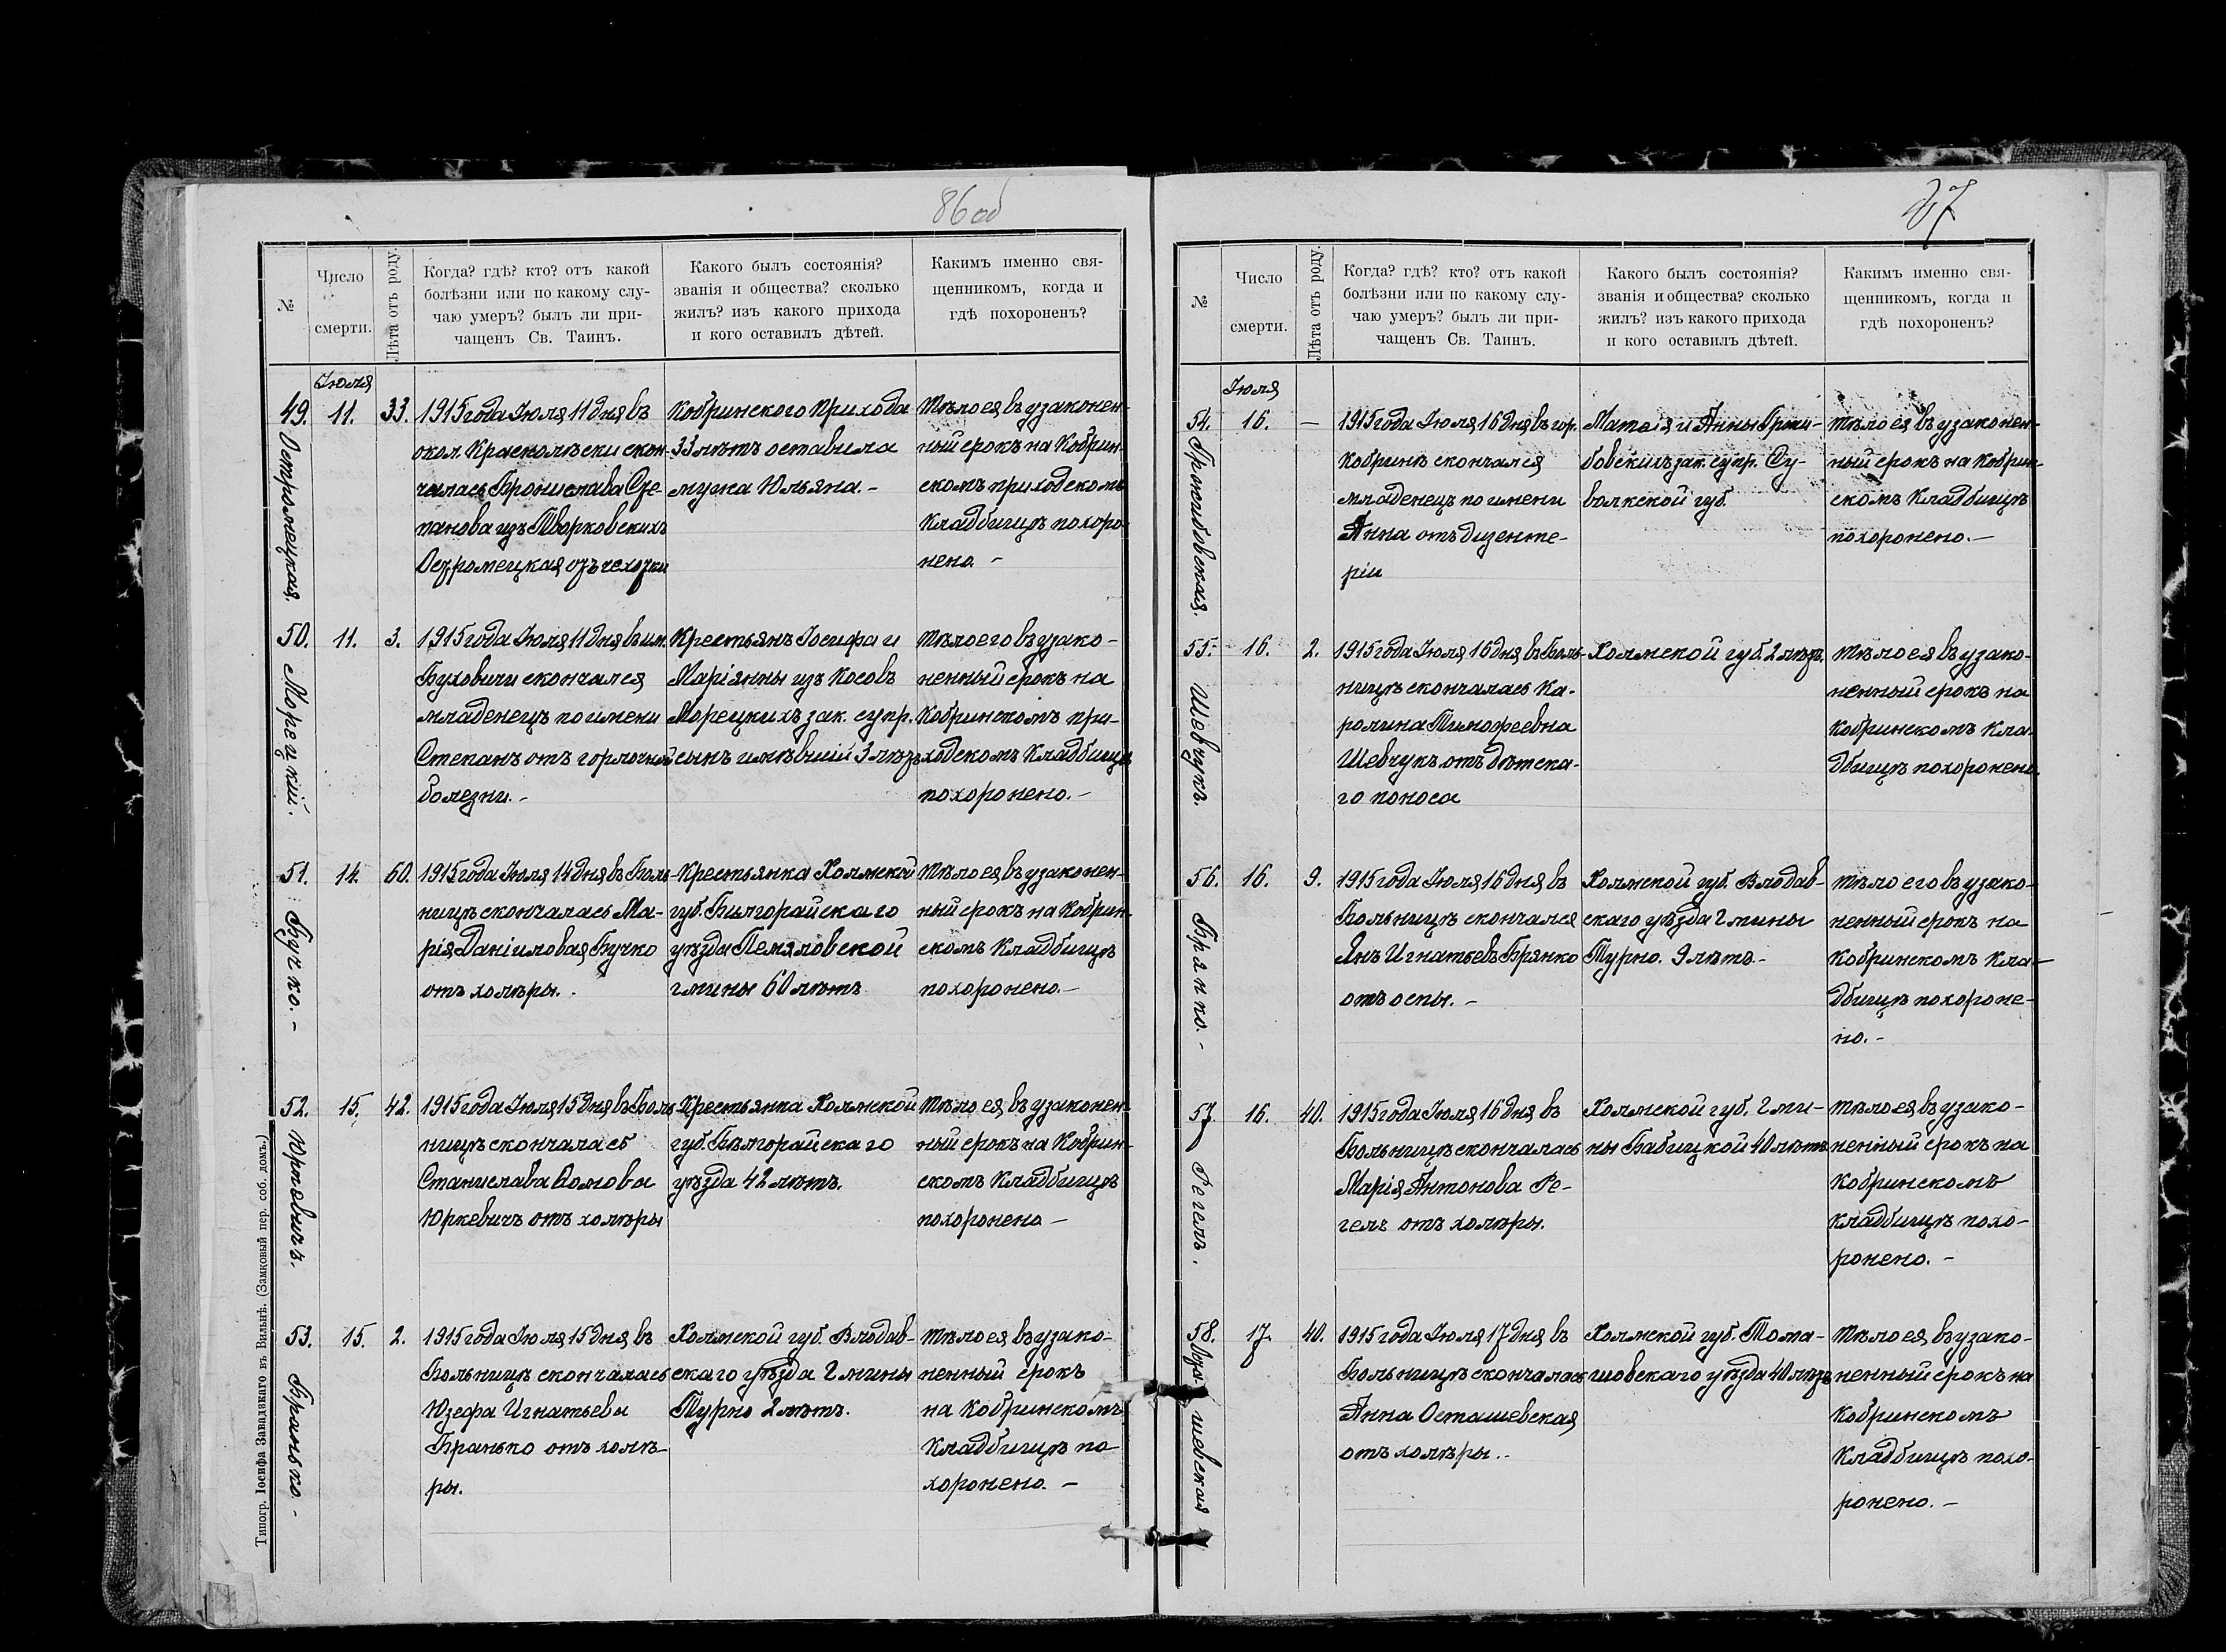 86 об
№
Число
смерти.
Лѣта отъ роду.
Когда? гдѣ? кто? отъ какой
болѣзни или по какому слу-
чаю умеръ? былъ ли при-
чащенъ Св. Таинъ.
Какого былъ состоянія?
званія и общества? сколько
жилъ? изъ какого прихода
и кого оставилъ дѣтей.
Какимъ именно свя-
щенникомъ, когда и
гдѣ похороненъ?
Іюля
49.
Остромецкая.
11.
33.
1915 года Іюля 11 дня въ
окол. Краснолѣски скон-
чалась Бронислава Сте-
панова изъ Творковскихъ
Остромецкая отъ чехотки
Кобринского Прихода
33 лѣтъ оставила
мужа Юльяна. -
Тѣло ея въ узаконен-
ный срокъ на Кобрин-
скомъ приходскомъ
Кладбищѣ похоро-
нено. -
50.
Морецкій.
11.
3.
1915 года Іюля 11 дня въ им.
Буховичи скончался
младенецъ по имени
Степанъ отъ горлочной
болезни. -
Крестьянъ Іосифа и
Маріянны изъ Косовъ
Морецкихъ зак. супр.
сынъ имѣвшій 3 лѣтъ
тѣло его въ узако-
ненный срокъ на
Кобринскомъ при-
ходскомъ Кладбищѣ
похоронено. -
51.
Бучко. -
14.
60.
1915 года Іюля 14 дня въ Боль-
ницѣ скончалась Ма-
рія Даніиловая Бучко
отъ холѣры. -
Крестьянка Холмской
губ. Билгорайскаго
уѣзда
гмины 60 лѣтъ
Тѣло ея въ узаконен-
ный срокъ на Кобрин-
скомъ Кладбищѣ
похоронено. -
52.
Юркевичъ.
15.
42.
1915 года Іюля 15 дня въ Боль-
ницѣ скончалась
Станислава Адамова
Юркевичъ отъ холѣры
Крестьянка Холмской
губ. Бѣлгорайскаго
уѣзда 42 лѣтъ.
Тѣло ея въ узаконен-
ный срокъ на Кобрин-
скомъ Кладбищѣ
похоронено -
53.
Бранько. -
15.
2.
1915 года Іюля 15 дня въ
Больницѣ скончалась
Юзефа Игнатьева
Бранько отъ холѣ-
ры.
Холмской губ. Влодав-
скаго уѣзда Гмины
Турно 2 лѣтъ.
тѣло ея въ узако-
ненный срокъ
на Кобринскомъ
Кладбищѣ по
хоронено. -
Типогр. Іосифа Завадзкаго въ Вильнѣ. (Замковый пер. соб. домъ.)
87
№
Число
смерти.
Лѣта отъ роду.
Когда? гдѣ? кто? отъ какой
болѣзни или по какому слу-
чаю умеръ? былъ ли при-
чащенъ Св. Таинъ.
Какого былъ состоянія?
званія и общества? сколько
жилъ? изъ какого прихода
и кого оставилъ дѣтей.
Какимъ именно свя-
щенникомъ, когда и
гдѣ похороненъ?
Іюля
54.
16.
—
1915 года Іюля 16 дня въ гор.
Кобринѣ скончался
младенецъ по имени
Анна отъ дизенте-
ріи
Матѳія и Анны
зак. супр. Су-
волкской губ.
тѣло ея въ узаконен-
ный срокъ на Кобрин-
скомъ Кладбищѣ
похоронено. -
55.
Шевчукъ.
16.
2.
1915 года Іюля 16 дня въ Боль-
ницѣ скончалась Ка-
ролина Тимофеевна
Шевчукъ отъ дѣтска-
го поноса
Холмской губ. 2 лѣтъ.
тѣло ея въ узако-
ненный срокъ на
Кобринскомъ Кла-
дбищѣ похоронено.
56.
Брянко. -
16.
9.
1915 года Іюля 16 дня въ
Больницѣ скончался
Янъ Игнатьевъ Брянко
отъ оспы. -
Холмской губ. Влодав-
скаго уѣзда Гмины
Турно. 9 лѣтъ. -
тѣло его въ узако-
ненный срокъ на
Кобринскомъ Кла-
дбищѣ похороне-
но. -
57.
Регель.
16.
40.
1915 года Іюля 16 дня въ
Больницѣ скончалась
Марія Антонова Ре-
гель отъ холѣры.
Холмской губ. Гми-
ны Бабицкой 40 лѣтъ
тѣло ея въ узако-
ненный срокъ на
Кобринскомъ
Кладбищѣ похо-
ронено. -
58.
Осташевская
17
40.
1915 года Іюля 17 дня въ
Больницѣ скончалась
Анна Осташевская
отъ холѣры. -
Холмской губ. Тома-
шовскаго уѣзда 40 лѣтъ
тѣло ея въ узако-
ненный срокъ на
Кобринскомъ
Кладбищѣ похо-
ронено. -